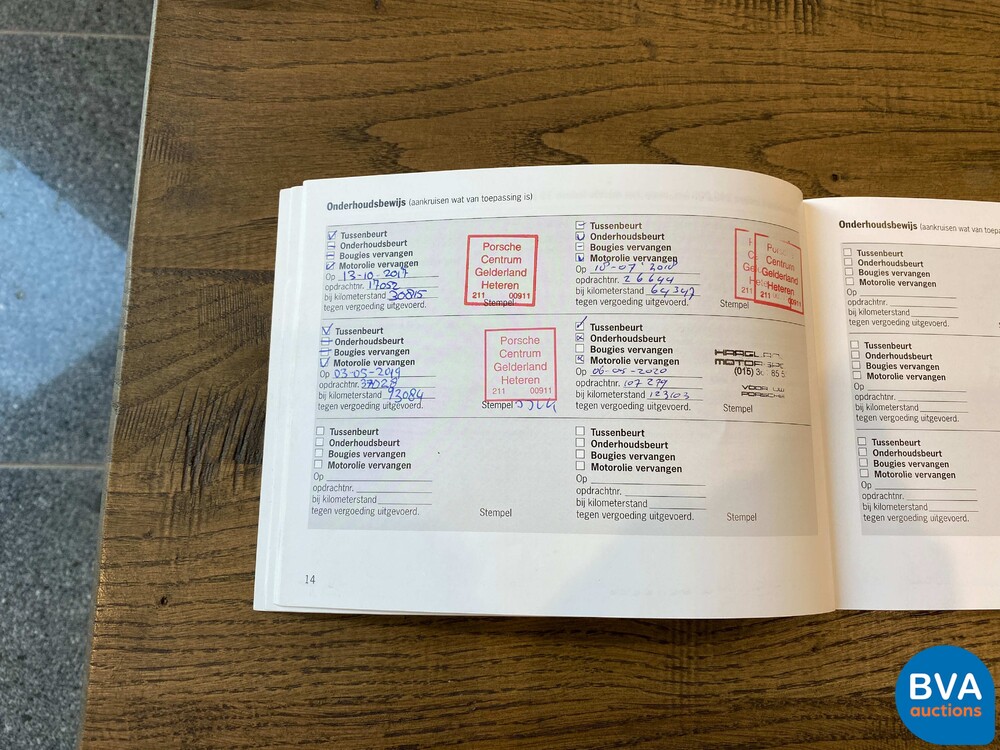 Onderhoudsbewijs (aankruisen wat van toepassing is)
Tussenbeurt
Onderhoudsbeurt
Bougies vervangen
Motorolie vervangen
Op 13-10-2017
opdrachtnr. 17052
bij kilometerstand 30815
tegen vergoeding uitgevoerd.
Porsche
Centrum
Gelderland
Heteren
211 00911
Stempel
Tussenbeurt
Onderhoudsbeurt
Bougies vervangen
Motorolie vervangen
Op 18-07-2018
opdrachtnr. 26644
bij kilometerstand 64347
tegen vergoeding uitgevoerd.
Porsche
Centrum
Gelderland
Heteren
211 00911
Stempel
Tussenbeurt
Onderhoudsbeurt
Bougies vervangen
Motorolie vervangen
Op 03-05-2019
opdrachtnr.
bij kilometerstand 93084
tegen vergoeding uitgevoerd.
Porsche
Centrum
Gelderland
Heteren
211 00911
Stempel
Tussenbeurt
Onderhoudsbeurt
Bougies vervangen
Motorolie vervangen
Op 06-05-2020
opdrachtnr. 107279
bij kilometerstand 123103
tegen vergoeding uitgevoerd.
(015)
VOOR UW
PORSCHE
Stempel
Tussenbeurt
Onderhoudsbeurt
Bougies vervangen
Motorolie vervangen
Op
opdrachtnr.
bij kilometerstand
tegen vergoeding uitgevoerd.
Stempel
Tussenbeurt
Onderhoudsbeurt
Bougies vervangen
Motorolie vervangen
Op
opdrachtnr.
bij kilometerstand
tegen vergoeding uitgevoerd.
Stempel
14
Onderhoudsbewijs (aankruisen wat van toepa
Tussenbeurt
Onderhoudsbeurt
Bougies vervangen
Motorolie vervangen
Op
opdrachtnr.
bij kilometerstand
tegen vergoeding uitgevoerd.
Tussenbeurt
Onderhoudsbeurt
Bougies vervangen
Motorolie vervangen
Op
opdrachtnr.
bij kilometerstand
tegen vergoeding uitgevoerd.
Tussenbeurt
Onderhoudsbeurt
Bougies vervangen
Motorolie vervangen
Op
opdrachtnr.
bij kilometerstand
tegen vergoeding uitgevoerd.
BVA
auctions